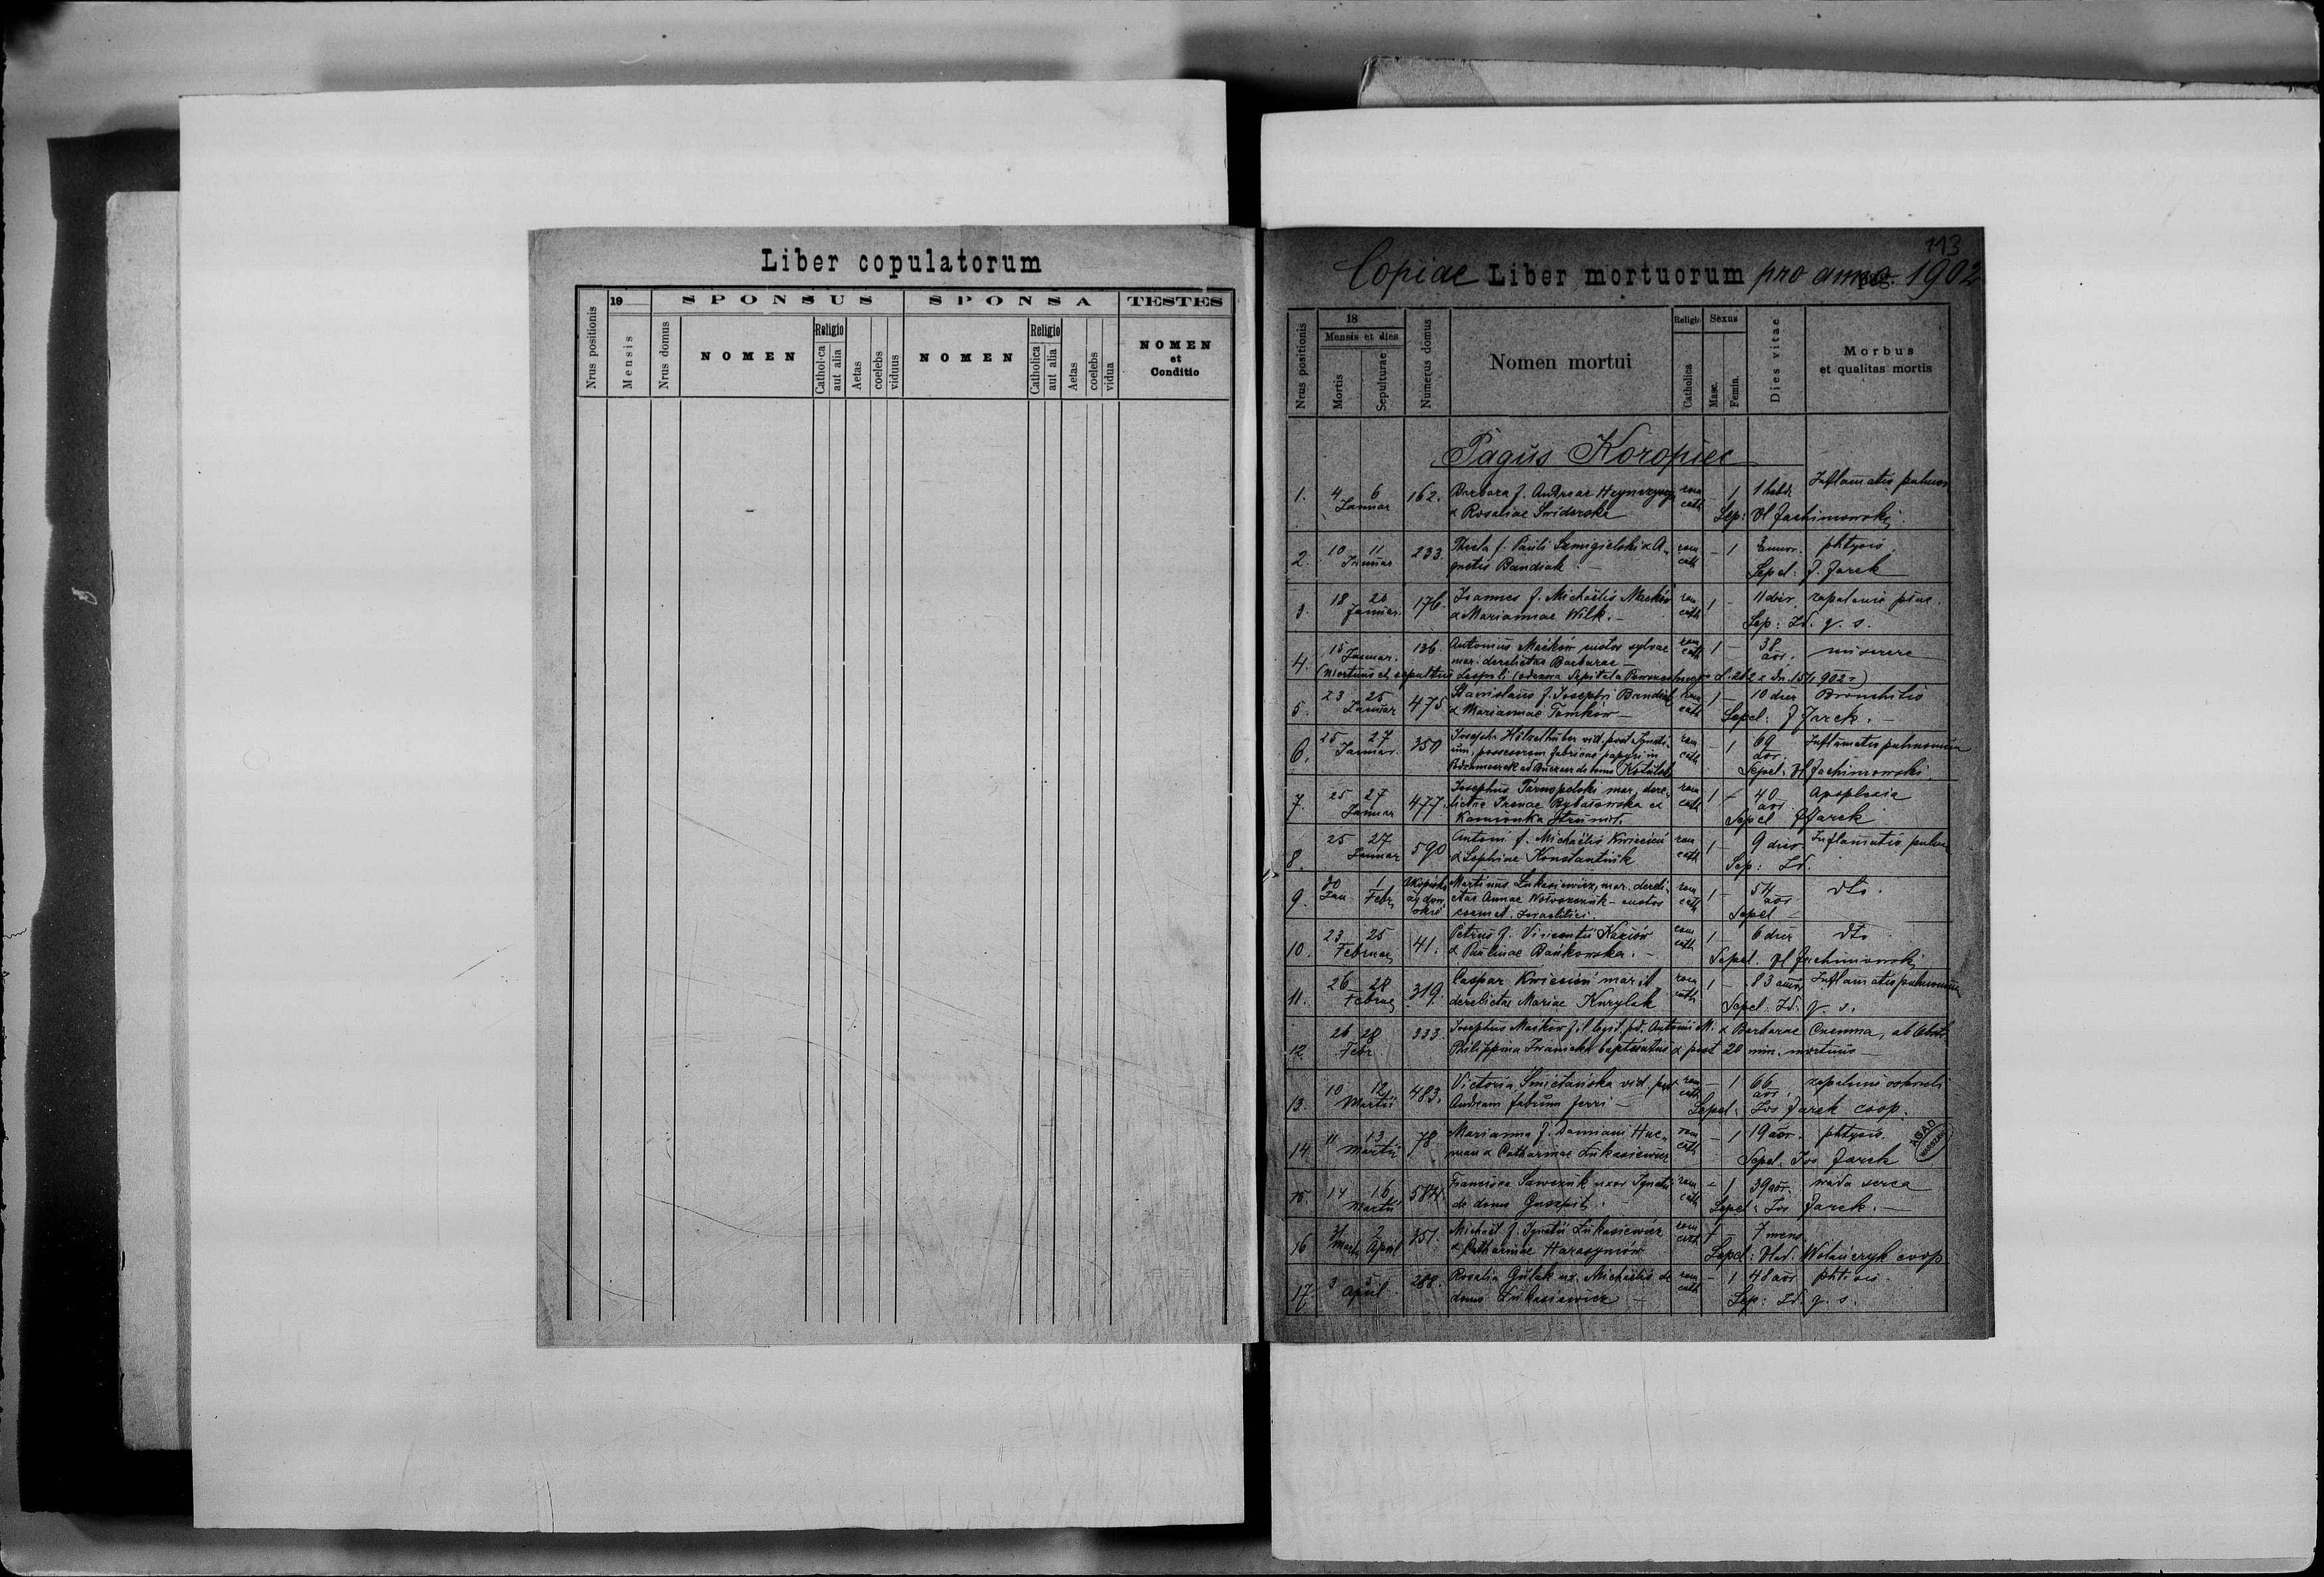 Liber copulatorum
Nrus positionis
19
Mensis
Nrus domus
SPONSUS
NOMEN
Religio
Catholica
aut alia
Aetas
coelebs
viduus
SPONSA
NOMEN
Religio
Catholica
aut alia
Aetas
coelebs
vidua
TESTES
NOMEN
et
Conditio
113
Copiae Liber mortuorum pro anno 1902
Nrus positionis
18
Mensis et dies
Mortis
Sepulturae
Numerus domus
Nomen mortui
Religio
Catholica
Sexus
Masc.
Femin.
Dies vitae
Morbus
et qualitas mortis
Pagus Koropiec
1. 4 6 162. Barbara f. Andreae rom 1 1 hebd. Inflamatio pulmon
Januar & Rosaliae Świderska cath Sep: Vl Jachimowski
2. 10 11 233. Thecla f. Pauli Szmigielski & A- rom - 1 phtysis
Januar gnetis Bandiak cath Sepel: J. Jarek
3. 18 20 176. Joannes f. Michaëlis Maćków rom 1 - 11 dier. zapalenie płuc.
Januar. & Mariannae Wilk. - cath Sep: Id. q. s.
4. 15 Januar. 136. Antonius Maćków custos sylvae rom 1 - 38 miserere
mar. derelictae Barbarae - cath aor.
(Mortuus et sepultus Leopoli
5. 23 25 475. Stanislaus f. Josephi Bandiak rom 1 - 10 dier Bronchitis
Januar & Mariannae Tomków - cath Sepel: J Jarek. -
6. 25 27 350 Josepha Hölzelhuber vid. post Ignati- rom - 1 69 Inflamatio pulmonum
Januar. um, possesorem fabricae papyri in cath aor.
Sepel: Vl Jachimowski
7. 25 27 477. Josephus Tarnopolski mar. dere- rom 1 - 40 Apoplexia
Januar lictae Irenae Rybatowska ex cath aor
Kamionka Strumił. Sepel J Jarek
8. 25 27 590 Antoni f. Michaëlis Kwiecień rom 1 - 9 dier. Inflamatio pulm
Januar & Sophiae Konstantiuk cath Sep: Id.
9. 30 1 Martinus Łukasiewicz, mar. dereli- rom 1 - 54 dto.
Jan Febr ctae Annae Wołoszczuk - custos cath aor
coemet. Israelitici. Sepel -
10. 23 25 41. Petrus f. Vincentii Kaziów rom 1 - 6 dier dto
Februar & Paulinae Bańkowska. - cath Sepel. Vl Jachimowski
11. 26 28 319. Caspar Kwiecień marit. rom 1 - 83 annor Inflamatio pulmonum
Februar derelictae Mariae Kurylak cath Sepel: Id. q. s.
12. 26 28 333. Josephus Maćków f. Antonii M. & Barbarae
Febr. Philippina Iwanicka baptisatus & post 20 min. mortuus -
13. 10 12 483. Victoria Śmietańska vid. post rom - 1 66 zapalenie
Martii Andream fabrum ferri - cath aor. Sepel: Jos Jarek coop.
14 11 13 78. Marianna f. Damiani Huc- rom - 1 19 aor. phtysis.
Martii man & Catharinae Łukasiewicz cath Sepel: Jos Jarek
AGAD
WARSZAWA
15. 14 16 584. Francisca Sawczuk uxor Ignatii rom - 1 39 aor. wada serca
Martii de domo cath Sepel: Jos Jarek. -
16 31 2 351. Michael f. Ignatii Łukasiewicz rom 1 7 mens
Martii April & Catharinae Harasymów cath Sepel: Vlad. Wołańczyk coop
17 3 5 288. Rosalia Gulak ux. Michaëlis de rom - 1 48 aor phtisis.
April domo Łukasiewicz - cath Sep: Id. q. s.